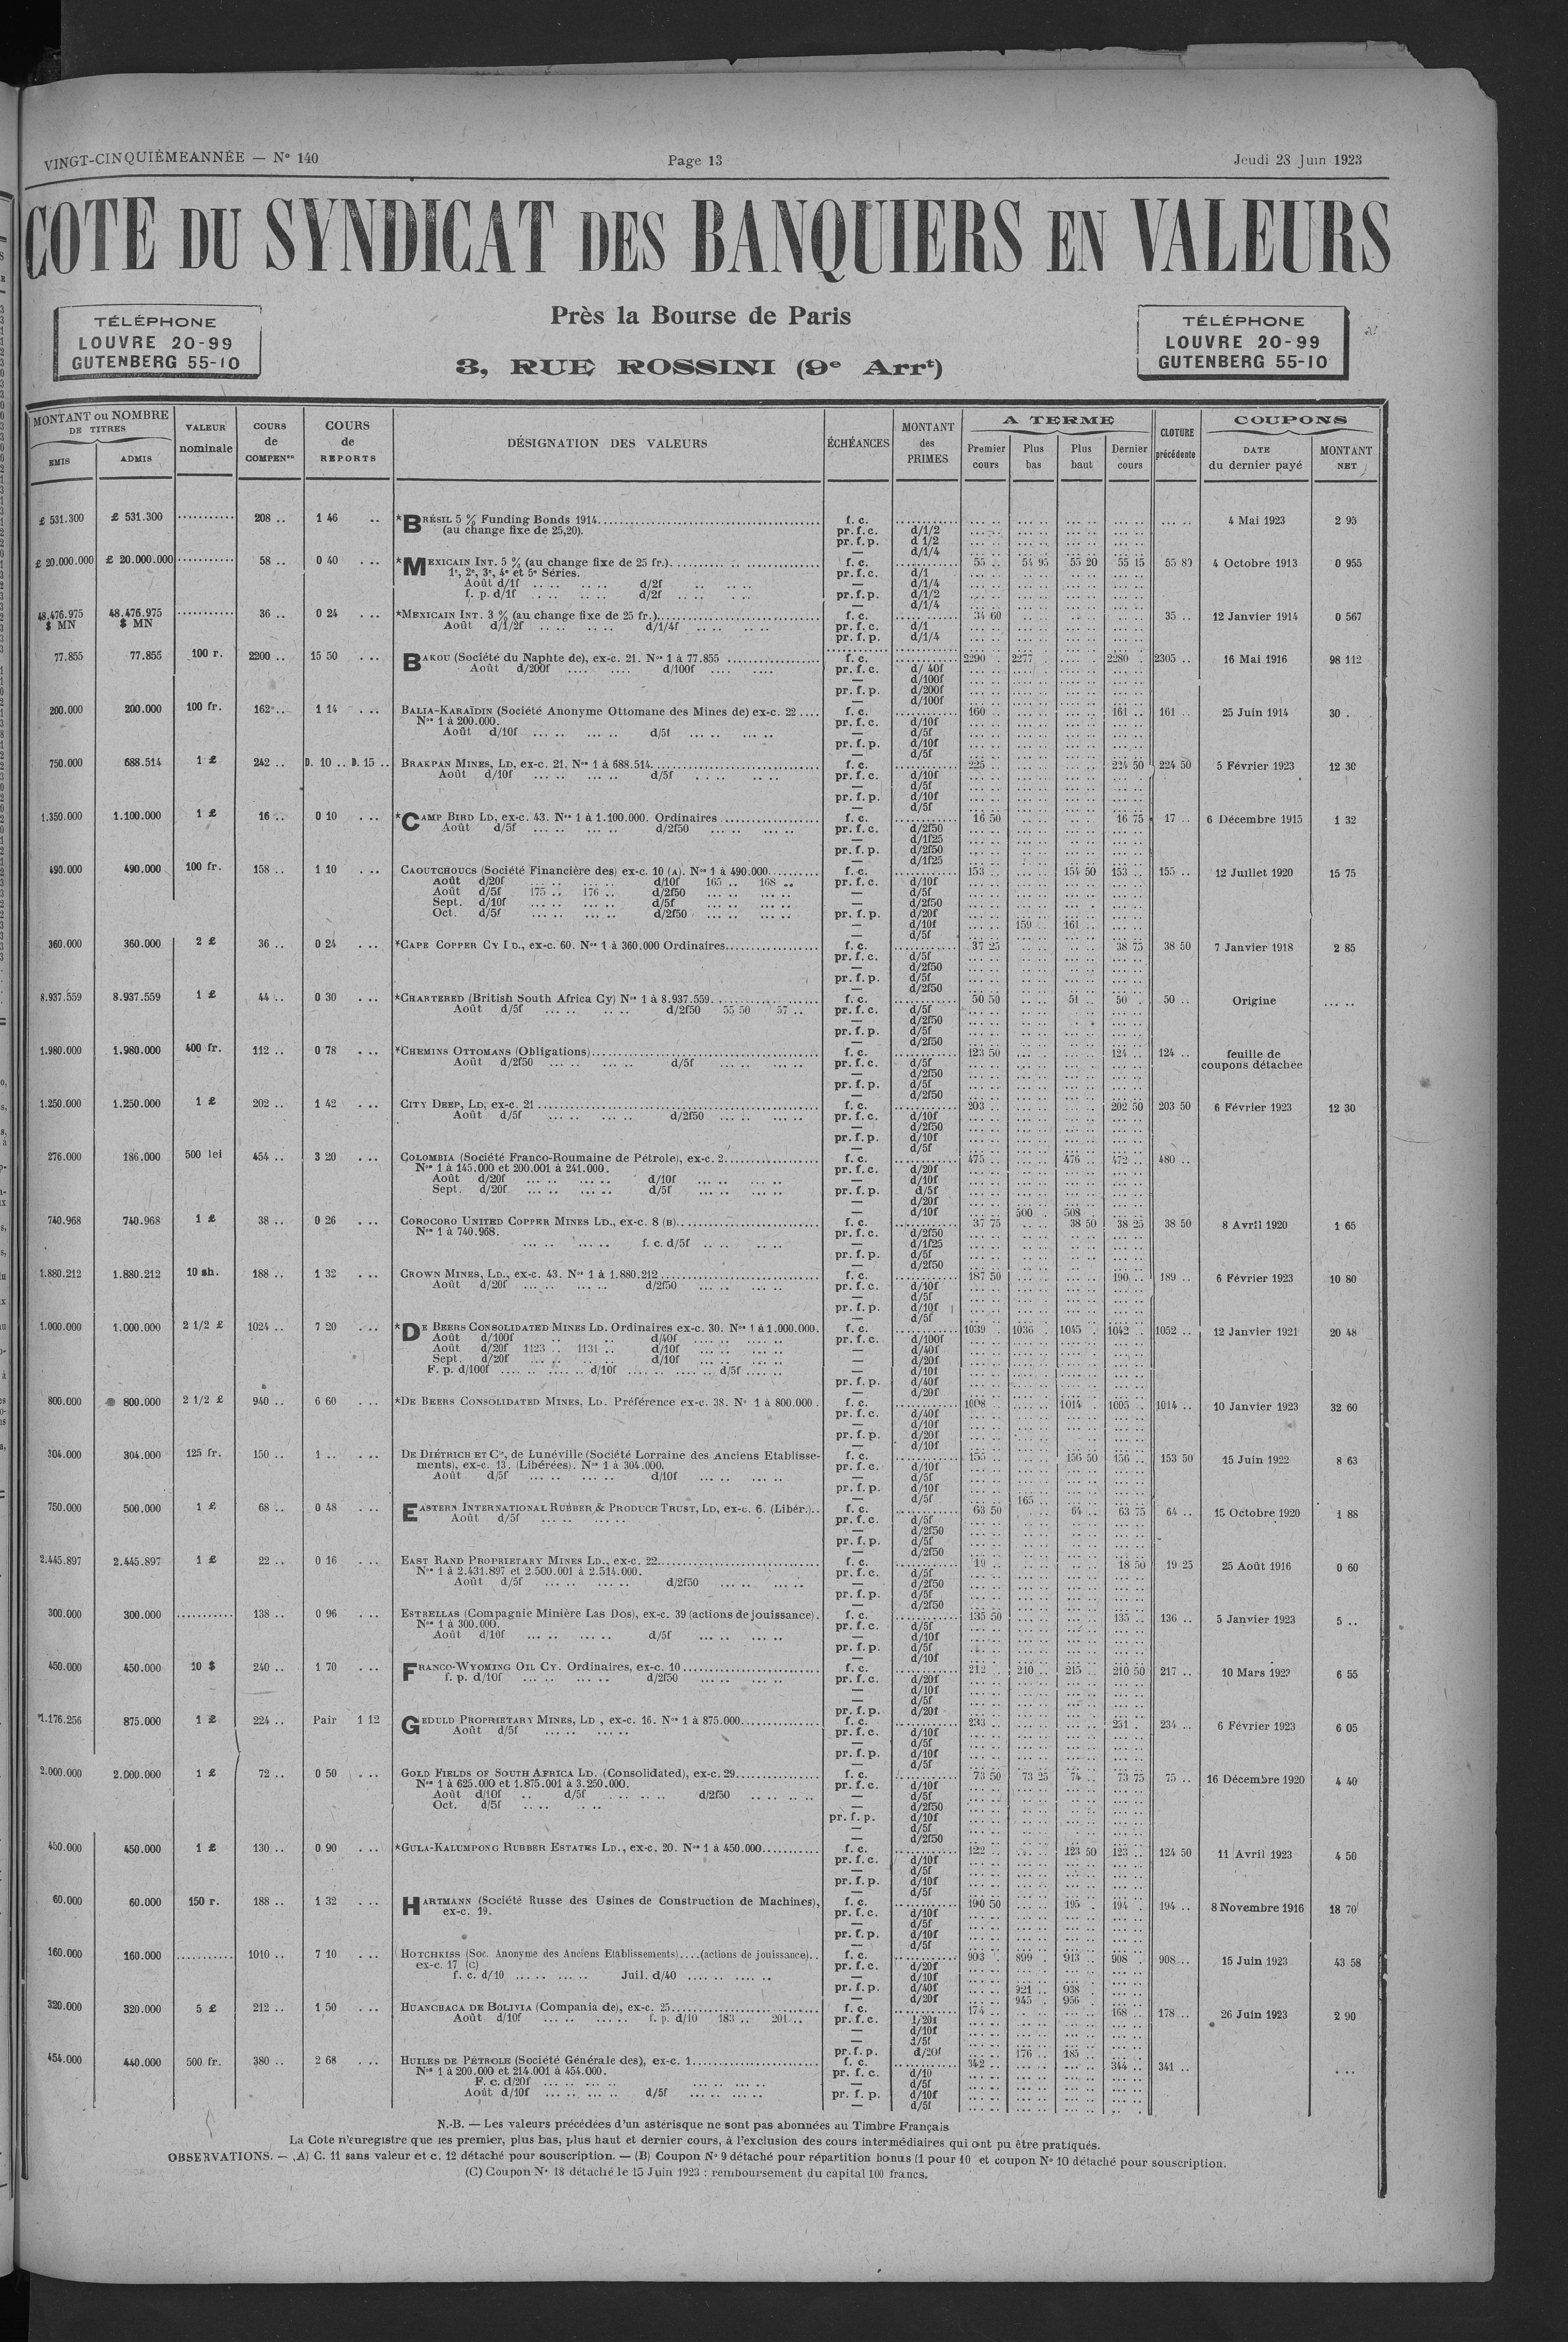 VINGT-CINQUIÈMEANNÉE — N° 140 Page 13 Jeudi 28 Juin 1923
COTE DU SYNDICAT DES BANQUIERS EN VALEURS
Près la Bourse de Paris
3, RUE ROSSINI (9e Arrt)
TÉLÉPHONE
LOUVRE 20-99
GUTENBERG 55-10
TÉLÉPHONE
LOUVRE 20-99
GUTENBERG 55-10
MONTANT ou NOMBRE DE TITRES
EMIS ADMIS
VALEUR nominale
COURS de COMPENon
COURS de REPORTS
DÉSIGNATION DES VALEURS
ÉCHÉANCES
MONTANT des PRIMES
A TERME
Premier cours Plus bas Plus haut Dernier cours
CLOTURE précédente
COUPONS
DATE du dernier payé MONTANT NET
£ 531.300 £ 531.300 208 .. 1 46 .. *BRÉSIL 5 % Funding Bonds 1914 f. c. 4 Mai 1923 2 93
(au change fixe de 25,20). pr. f. c. d/1/2
pr. f. p. d 1/2
— d/1/4
£ 20.000.000 £ 20.000.000 58 .. 0 40 ... *MEXICAIN INT. 5 % (au change fixe de 25 fr.) f. c. 55 .. 54 95 55 20 55 15 55 80 4 Octobre 1913 0 955
1e, 2e, 3e, 4e et 5e Séries. pr. f. c. d/1
Août d/1f d/2f — d/1/4
f. p. d/1f d/2f pr. f. p. d/1/2
— d/1/4
48.476.975 $ MN 48.476.975 $ MN 36 .. 0 24 ... *MEXICAIN INT. 3 % (au change fixe de 25 fr.) f. c. 34 60 35 .. 12 Janvier 1914 0 567
Août d/1/2f d/1/4f pr. f. c. d/1
pr. f. p. d/1/4
77.855 77.855 100 r. 2200 .. 15 50 ... BAKOU (Société du Naphte de), ex-c. 21. Nos 1 à 77.855 f. c. 2290 . 2277 . 2280 . 2305 .. 16 Mai 1916 98 112
Août d/200f d/100f pr. f. c. d/ 40f
— d/100f
pr. f. p. d/200f
— d/100f
200.000 200.000 100 fr. 162 .. 1 14 ... BALIA-KARAÏDIN (Société Anonyme Ottomane des Mines de) ex-c. 22 f. c. 160 .. 161 .. 161 .. 25 Juin 1914 30 .
Nos 1 à 200.000. pr. f. c. d/10f
Août d/10f d/5f — d/5f
pr. f. p. d/10f
— d/5f
750.000 688.514 1 £ 242 .. D. 10 .. D. 15 .. BRAKPAN MINES, LD, ex-c. 21. Nos 1 à 688.514 f. c. 225 .. 224 50 224 50 5 Février 1923 12 30
Août d/10f d/5f pr. f. c. d/10f
— d/5f
pr. f. p. d/10f
— d/5f
1.350.000 1.100.000 1 £ 16 .. 0 10 ... *CAMP BIRD LD, ex-c. 43. Nos 1 à 1.100.000. Ordinaires f. c. 16 50 16 75 17 .. 6 Décembre 1915 1 32
Août d/5f d/2f50 pr. f. c. d/2f50
— d/1f25
pr. f. p. d/2f50
— d/1f25
490.000 490.000 100 fr. 158 .. 1 10 ... CAOUTCHOUCS (Société Financière des) ex-c. 10 (A). Nos 1 à 490.000 f. c. 153 .. 154 50 153 .. 155 .. 12 Juillet 1920 15 75
Août d/20f d/10f 165 .. 168 .. pr. f. c. d/10f
Août d/5f 175 .. 176 .. d/2f50 — d/5f
Sept. d/10f d/5f — d/2f50
Oct. d/5f d/2f50 pr. f. p. d/20f
— d/10f 159 161 ..
— d/5f
360.000 360.000 2 £ 36 .. 0 24 ... *CAPE COPPER CY LD., ex-c. 60. Nos 1 à 360.000 Ordinaires f. c. 37 25 38 75 38 50 7 Janvier 1918 2 85
pr. f. c. d/5f
— d/2f50
pr. f. p. d/5f
— d/2f50
8.937.559 8.937.559 1 £ 44 .. 0 30 ... *CHARTERED (British South Africa Cy) Nos 1 à 8.937.559 f. c. 50 50 51 . 50 . 50 .. Origine
Août d/5f d/2f50 55 50 57 .. pr. f. c. d/5f
— d/2f50
pr. f. p. d/5f
— d/2f50
1.980.000 1.980.000 400 fr. 112 .. 0 78 ... *CHEMINS OTTOMANS (Obligations) f. c. 123 50 124 .. 124 .. feuille de coupons détachée
Août d/2f50 d/5f pr. f. c. d/5f
— d/2f50
pr. f. p. d/5f
— d/2f50
1.250.000 1.250.000 1 £ 202 .. 1 42 ... CITY DEEP, LD, ex-c. 21 f. c. 203 .. 202 50 203 50 6 Février 1923 12 30
Août d/5f d/2f50 pr. f. c. d/10f
— d/2f50
pr. f. p. d/10f
— d/5f
276.000 186.000 500 lei 454 .. 3 20 ... COLOMBIA (Société Franco-Roumaine de Pétrole), ex-c. 2 f. c. 475 .. 476 .. 472 .. 480 ..
Nos 1 à 145.000 et 200.001 à 241.000. pr. f. c. d/20f
Août d/20f d/10f — d/10f
Sept. d/20f d/5f pr. f. p. d/5f
— d/20f
— d/10f 500 . 508 .
740.968 740.968 1 £ 38 .. 0 26 ... COROCORO UNITED COPPER MINES LD., ex-c. 8 (B) f. c. 37 75 38 50 38 25 38 50 8 Avril 1920 1 65
Nos 1 à 740.968. pr. f. c. d/2f50
f. c. d/5f — d/1f25
pr. f. p. d/5f
— d/2f50
1.880.212 1.880.212 10 sh. 188 .. 1 32 ... CROWN MINES, LD., ex-c. 43. Nos 1 à 1.880.212 f. c. 187 50 190 .. 189 .. 6 Février 1923 10 80
Août d/20f d/2f50 pr. f. c. d/10f
— d/5f
pr. f. p. d/10f
— d/5f
1.000.000 1.000.000 2 1/2 £ 1024 .. 7 20 ... *DE BEERS CONSOLIDATED MINES LD. Ordinaires ex-c. 30. Nos 1 à 1.000.000. f. c. 1039 . 1036 . 1045 . 1042 . 1052 .. 12 Janvier 1921 20 48
Août d/100f d/40f pr. f. c. d/100f
Août d/20f 1123 .. 1131 .. d/10f — d/40f
Sept. d/20f d/10f — d/20f
F. p. d/100f d/10f d/5f — d/10f
pr. f. p. d/40f
— d/20f
800.000 800.000 2 1/2 £ 940 .. 6 60 ... *DE BEERS CONSOLIDATED MINES, LD. Préférence ex-c. 38. N° 1 à 800.000. f. c. 1008 .. 1014 . 1005 .. 1014 .. 10 Janvier 1923 32 60
pr. f. c. d/40f
— d/10f
pr. f. p. d/20f
— d/10f
304.000 304.000 125 fr. 150 .. 1 .. ... DE DIÉTRICH ET Cie, de Lunéville (Société Lorraine des Anciens Etablisse- f. c. 155 .. 156 50 156 .. 153 50 15 Juin 1922 8 63
ments), ex-c. 13. (Libérées). Nos 1 à 304.000. pr. f. c. d/10f
Août d/5f d/10f — d/5f
pr. f. p. d/10f
— d/5f 165 ..
750.000 500.000 1 £ 68 .. 0 48 ... EASTERN INTERNATIONAL RUBBER & PRODUCE TRUST, LD, ex-c. 6. (Libér.) f. c. 63 50 64 .. 63 75 64 .. 15 Octobre 1920 1 88
Août d/5f pr. f. c. d/5f
— d/2f50
pr. f. p. d/5f
— d/2f50
2.445.897 2.445.897 1 £ 22 .. 0 16 ... EAST RAND PROPRIETARY MINES LD., ex-c. 22 f. c. 19 .. 18 50 19 25 25 Août 1916 0 60
Nos 1 à 2.431.897 et 2.500.001 à 2.514.000. pr. f. c. d/5f
Août d/5f d/2f50 — d/2f50
pr. f. p. d/5f
— d/2f50
300.000 300.000 138 .. 0 96 ... ESTRELLAS (Compagnie Minière Las Dos), ex-c. 39 (actions de jouissance). f. c. 135 50 135 .. 136 .. 5 Janvier 1923 5 ..
Nos 1 à 300.000. pr. f. c. d/5f
Août d/10f d/5f — d/10f
pr. f. p. d/5f
— d/10f
450.000 450.000 10 $ 240 .. 1 70 ... FRANCO-WYOMING OIL CY. Ordinaires, ex-c. 10 f. c. 212 .. 210 .. 215 .. 210 50 217 .. 10 Mars 1923 6 55
f. p. d/10f d/2f50 pr. f. c. d/20f
— d/10f
— d/5f
pr. f. p. d/20f
1.176.256 875.000 1 £ 224 .. Pair 1 12 GEDULD PROPRIETARY MINES, LD, ex-c. 16. Nos 1 à 875.000 f. c. 233 .. 231 . 234 .. 6 Février 1923 6 05
Août d/5f pr. f. c. d/10f
— d/5f
pr. f. p. d/10f
— d/5f
2.000.000 2.000.000 1 £ 72 .. 0 50 ... GOLD FIELDS OF SOUTH AFRICA LD. (Consolidated), ex-c. 29 f. c. 73 50 73 25 74 .. 73 75 75 .. 16 Décembre 1920 4 40
Nos 1 à 625.000 et 1.875.001 à 3.250.000. pr. f. c. d/10f
Août d/10f d/5f d/2f50 — d/5f
Oct. d/5f — d/2f50
pr. f. p. d/10f
— d/5f
— d/2f50
450.000 450.000 1 £ 130 .. 0 90 ... *GULA-KALUMPONG RUBBER ESTATES LD., ex-c. 20. Nos 1 à 450.000 f. c. 122 .. 123 50 123 .. 124 50 11 Avril 1923 4 50
pr. f. c. d/10f
— d/5f
pr. f. p. d/10f
— d/5f
60.000 60.000 150 r. 188 .. 1 32 ... HARTMANN (Société Russe des Usines de Construction de Machines), f. c. 190 50 195 . 194 . 194 .. 8 Novembre 1916 18 70
ex-c. 19. pr. f. c. d/10f
— d/5f
pr. f. p. d/10f
— d/5f
160.000 160.000 1010 .. 7 10 ... HOTCHKISS (Soc. Anonyme des Anciens Etablissements)....(actions de jouissance).. f. c. 903 . 899 . 913 .. 908 . 908 .. 15 Juin 1923 43 58
ex-c. 17 (C) pr. f. c. d/20f
f. c. d/10 Juil. d/40 — d/10f
pr. f. p. d/40f 921 .. 938 .
— d/20f 945 . 956 .
320.000 320.000 5 £ 212 .. 1 50 ... HUANCHACA DE BOLIVIA (Compania de), ex-c. 25 f. c. 174 .. 168 .. 178 .. 26 Juin 1923 2 90
Août d/10f f. p. d/10 183 .. 201 .. pr. f. c. d/20f
— d/10f
— d/5f
pr. f. p. d/20f 176 .. 185 ..
454.000 440.000 500 fr. 380 .. 2 68 ... HUILES DE PÉTROLE (Société Générale des), ex-c. 1 f. c. 342 .. 344 .. 341 ..
Nos 1 à 200.000 et 214.001 à 454.000. pr. f. c. d/10
F. c. d/20f — d/5f
Août d/10f d/5f pr. f. p. d/10f
— d/5f
N.-B. — Les valeurs précédées d'un astérisque ne sont pas abonnées au Timbre Français
La Cote n'enregistre que les premier, plus bas, plus haut et dernier cours, à l'exclusion des cours intermédiaires qui ont pu être pratiqués.
OBSERVATIONS. — (A) C. 11 sans valeur et c. 12 détaché pour souscription. — (B) Coupon N° 9 détaché pour répartition bonus (1 pour 10 et coupon N° 10 détaché pour souscription.
(C) Coupon N° 18 détaché le 15 Juin 1923 : remboursement du capital 100 francs.